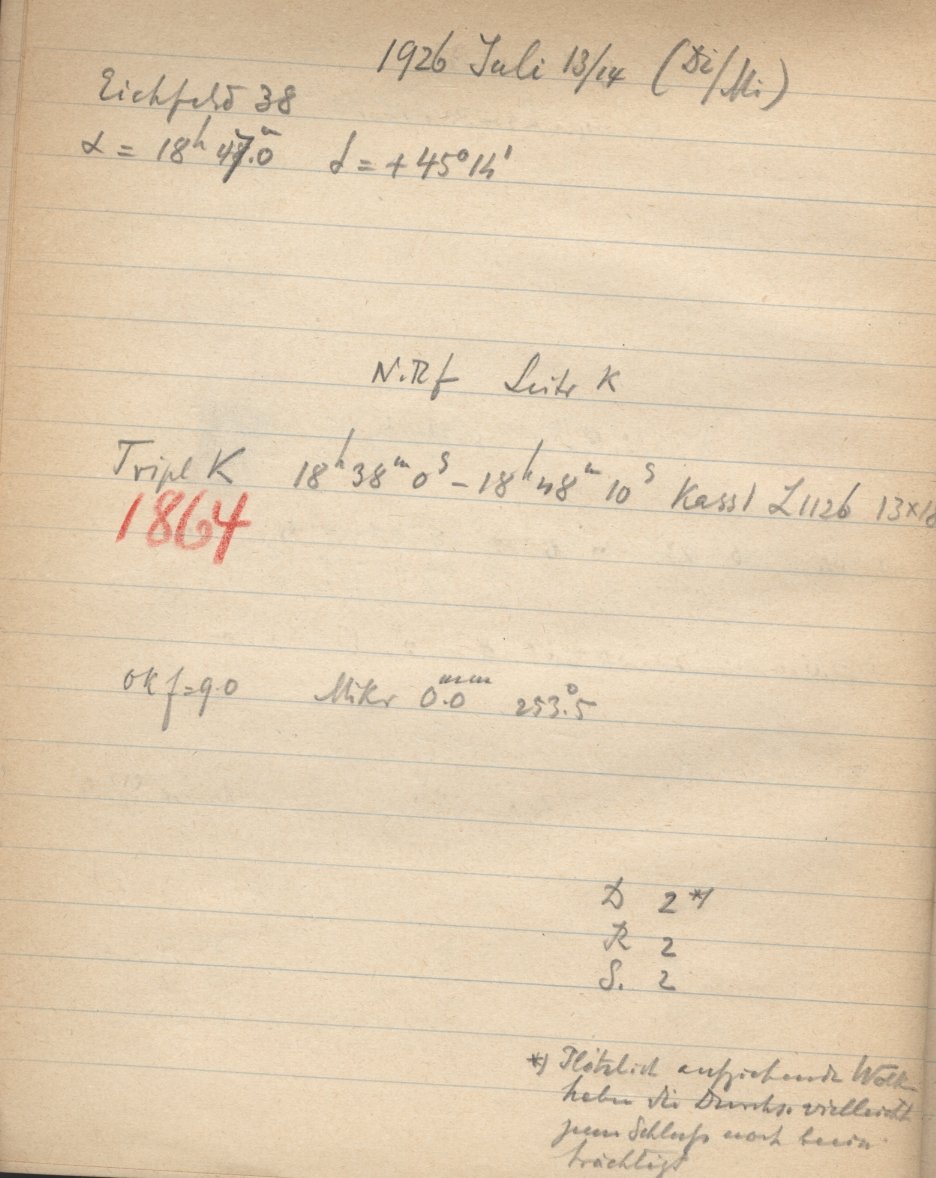 1926 Juli 13/14 (Di/Mi)
Eichfeld 38
α = 18ʰ 47ᵐ.0 δ = +45°14'
N.Rf Leitr K
Tripl K 18ʰ38ᵐ0ˢ – 18ʰ48ᵐ10ˢ Kass1 L1126 13×18
1864
Ok f=90 Mikr 0.0ᵐᵐ 253.°5
D 2 *)
R 2
S. 2
*) Plötzlich aufziehende Wolk
haben die Durchs. vielleicht
zum Schluß noch beein
trächtigt